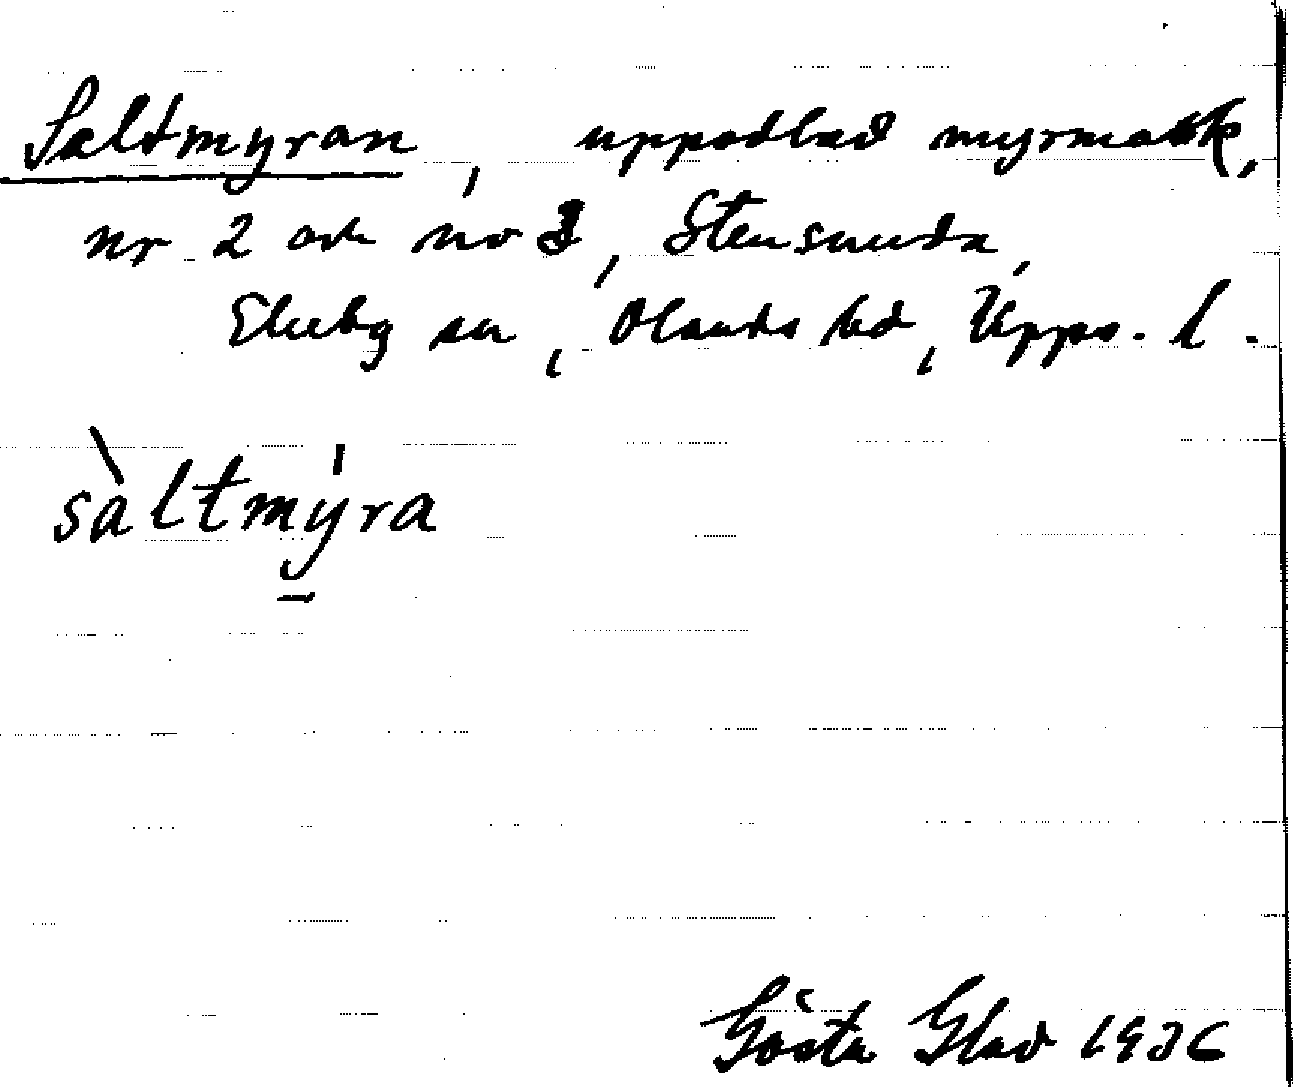 Saltmyran, uppodlad myrmark,
nr 2 och nr 3, Stensunda,
Ekeby sn, Olands hd, Upps. l.
sàltmýra
Gösta Glad 1936